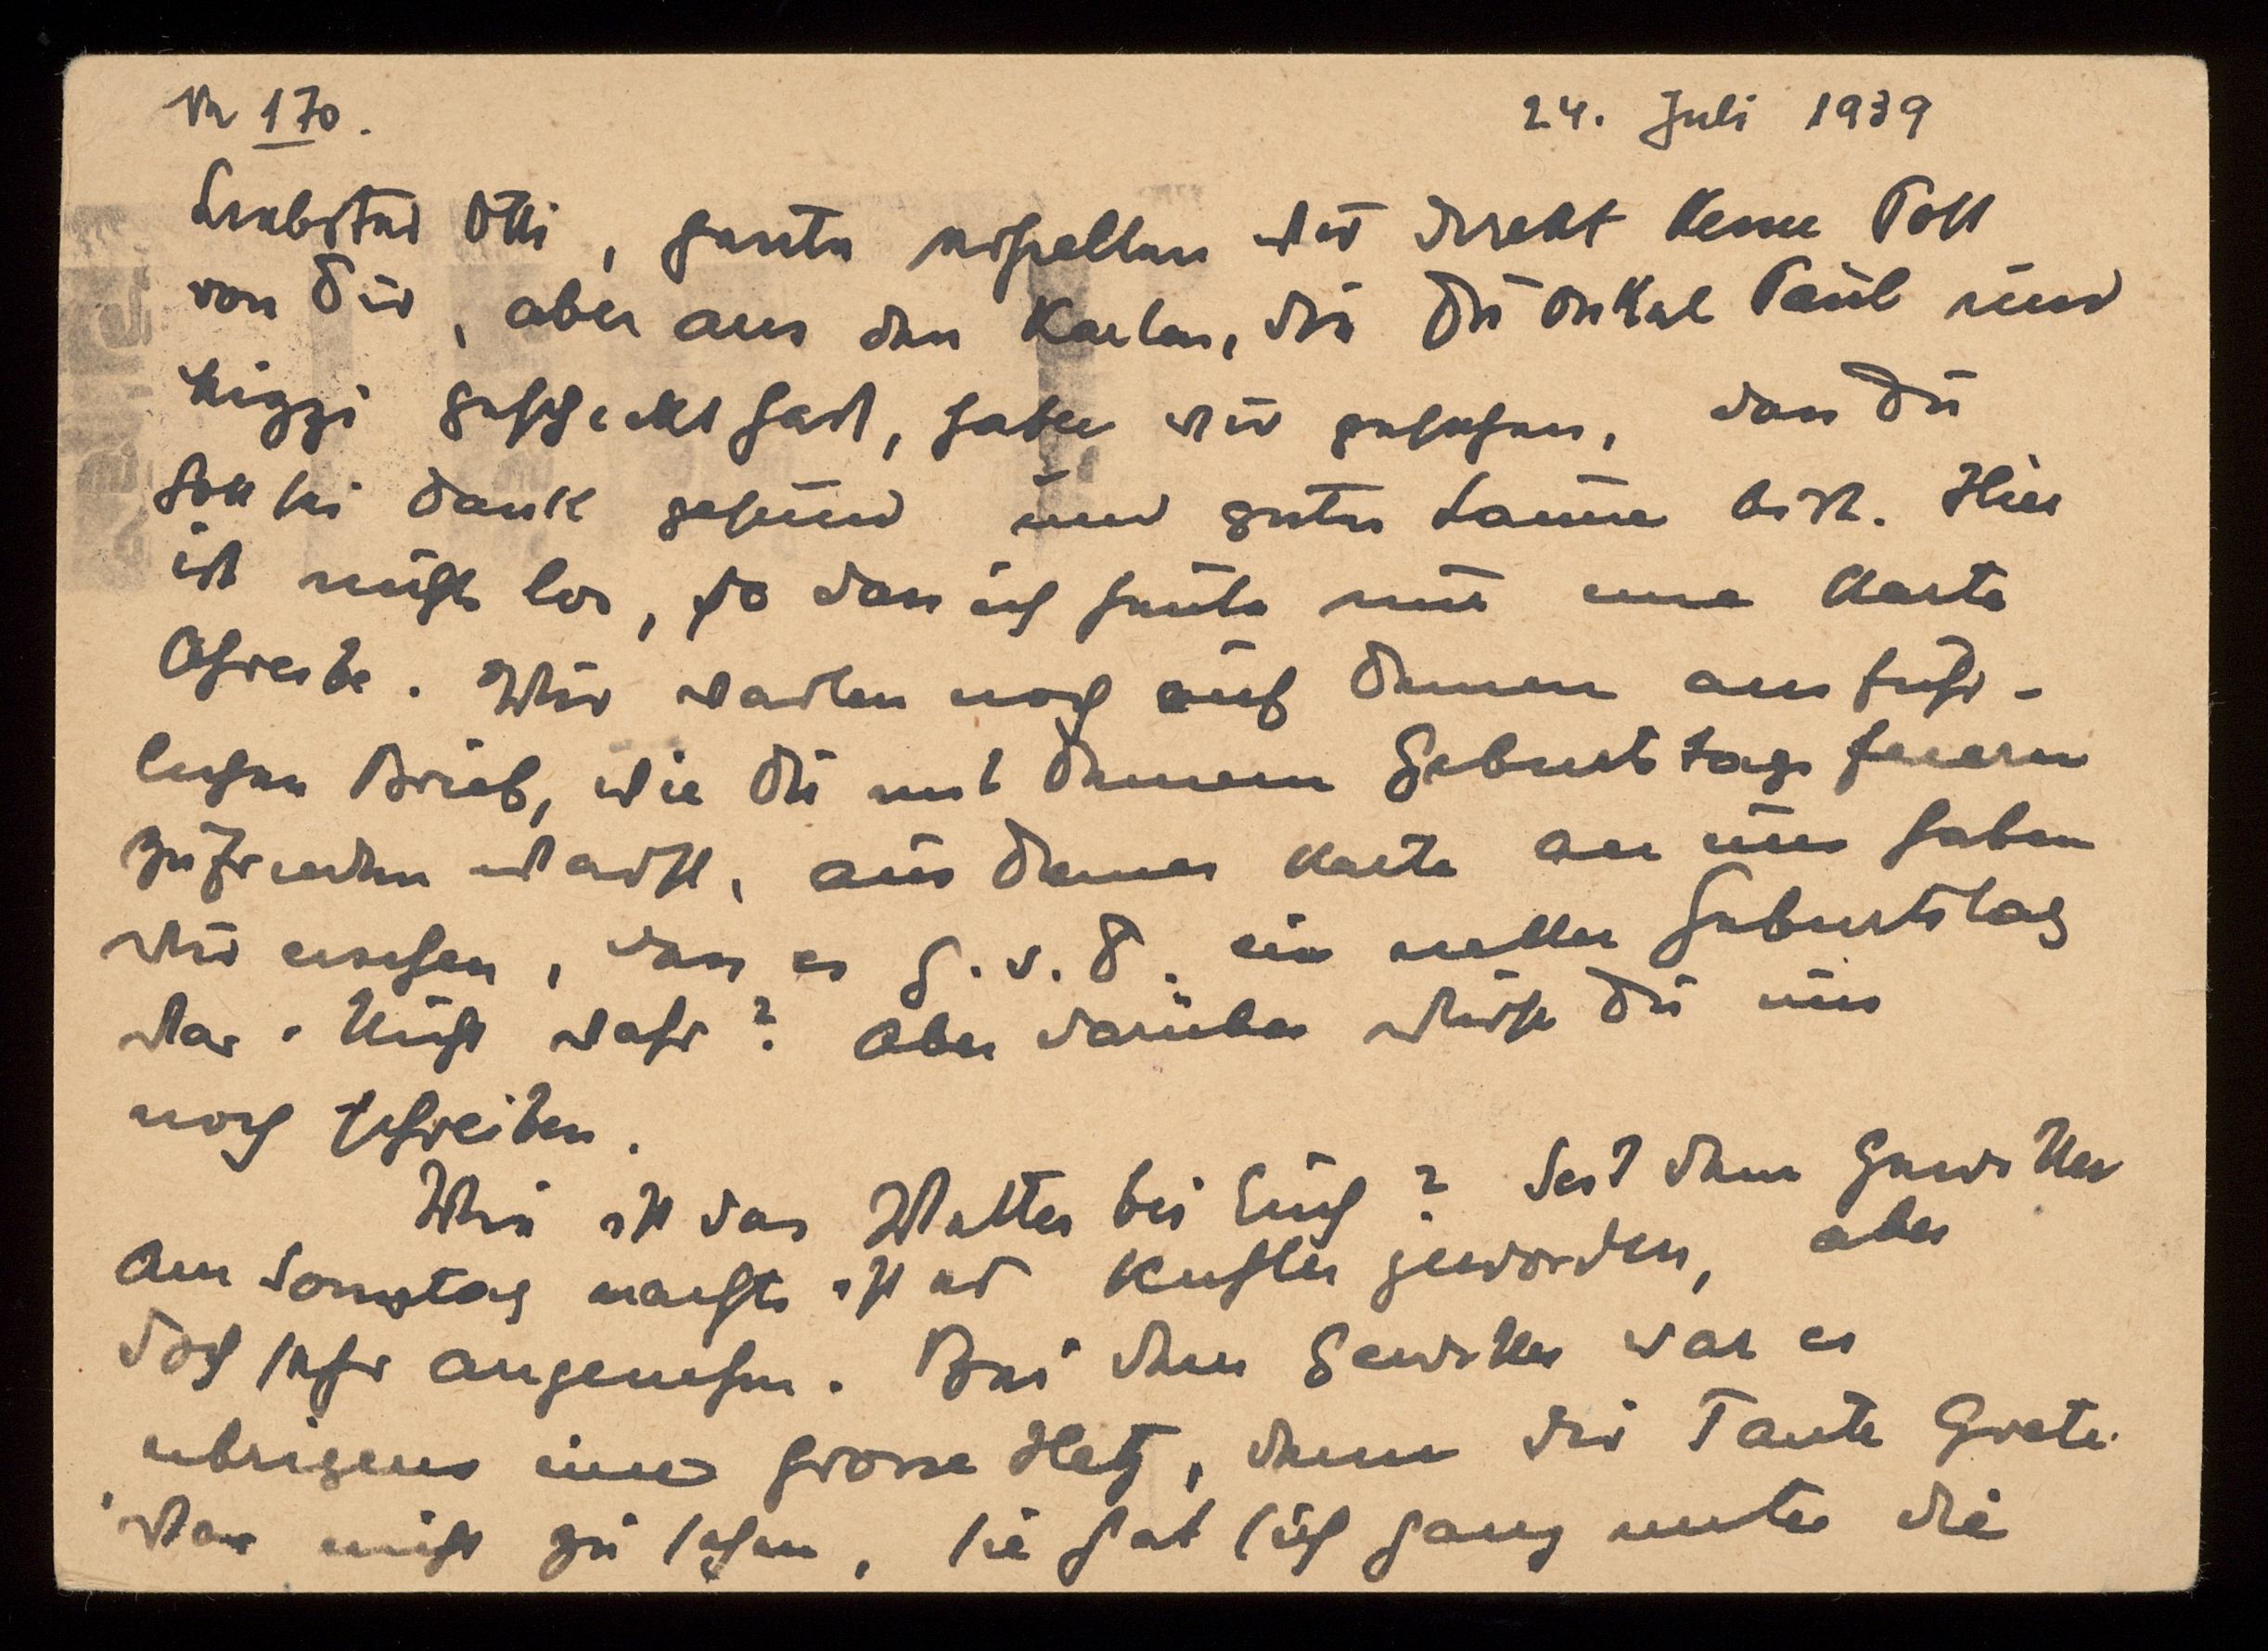 Nr 170.
24. Juli 1939
Liebster Otti, heute erhielten wir direkt keine Post
von Dir, aber aus den Karten, die Du Onkel Paul und
geschickt hast, haben wir gesehen, dass Du
Gott sei dank gesund und guter Laune bist. Hier
ist nichts los, so dass ich heute nur eine Karte
schreibe. Wir warten noch auf Deinen ausführ-
lichen Brief, wie Du mit Deinem Geburtstag feiern
zufrieden warst, aus Deiner Karte an uns haben
wir ersehen, dass es G. s. D. ein netter Geburtstag
war. Nicht wahr? Aber darüber wirst Du uns
noch schreiben.
Wie ist das Wetter bei Euch? Seit dem Gewitter
am Sonntag nachts ist es kühler geworden, aber
doch sehr angenehm. Bei dem Gewitter war es
übrigens eine grosse Hetz, denn die Tante Grete
war nicht zu sehen, sie hat sich ganz unter die